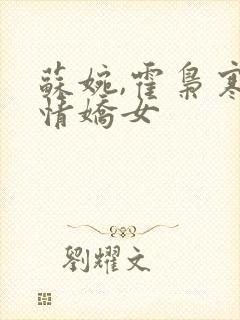 蘇婉,霍梟寒
情嬌女
劉耀文